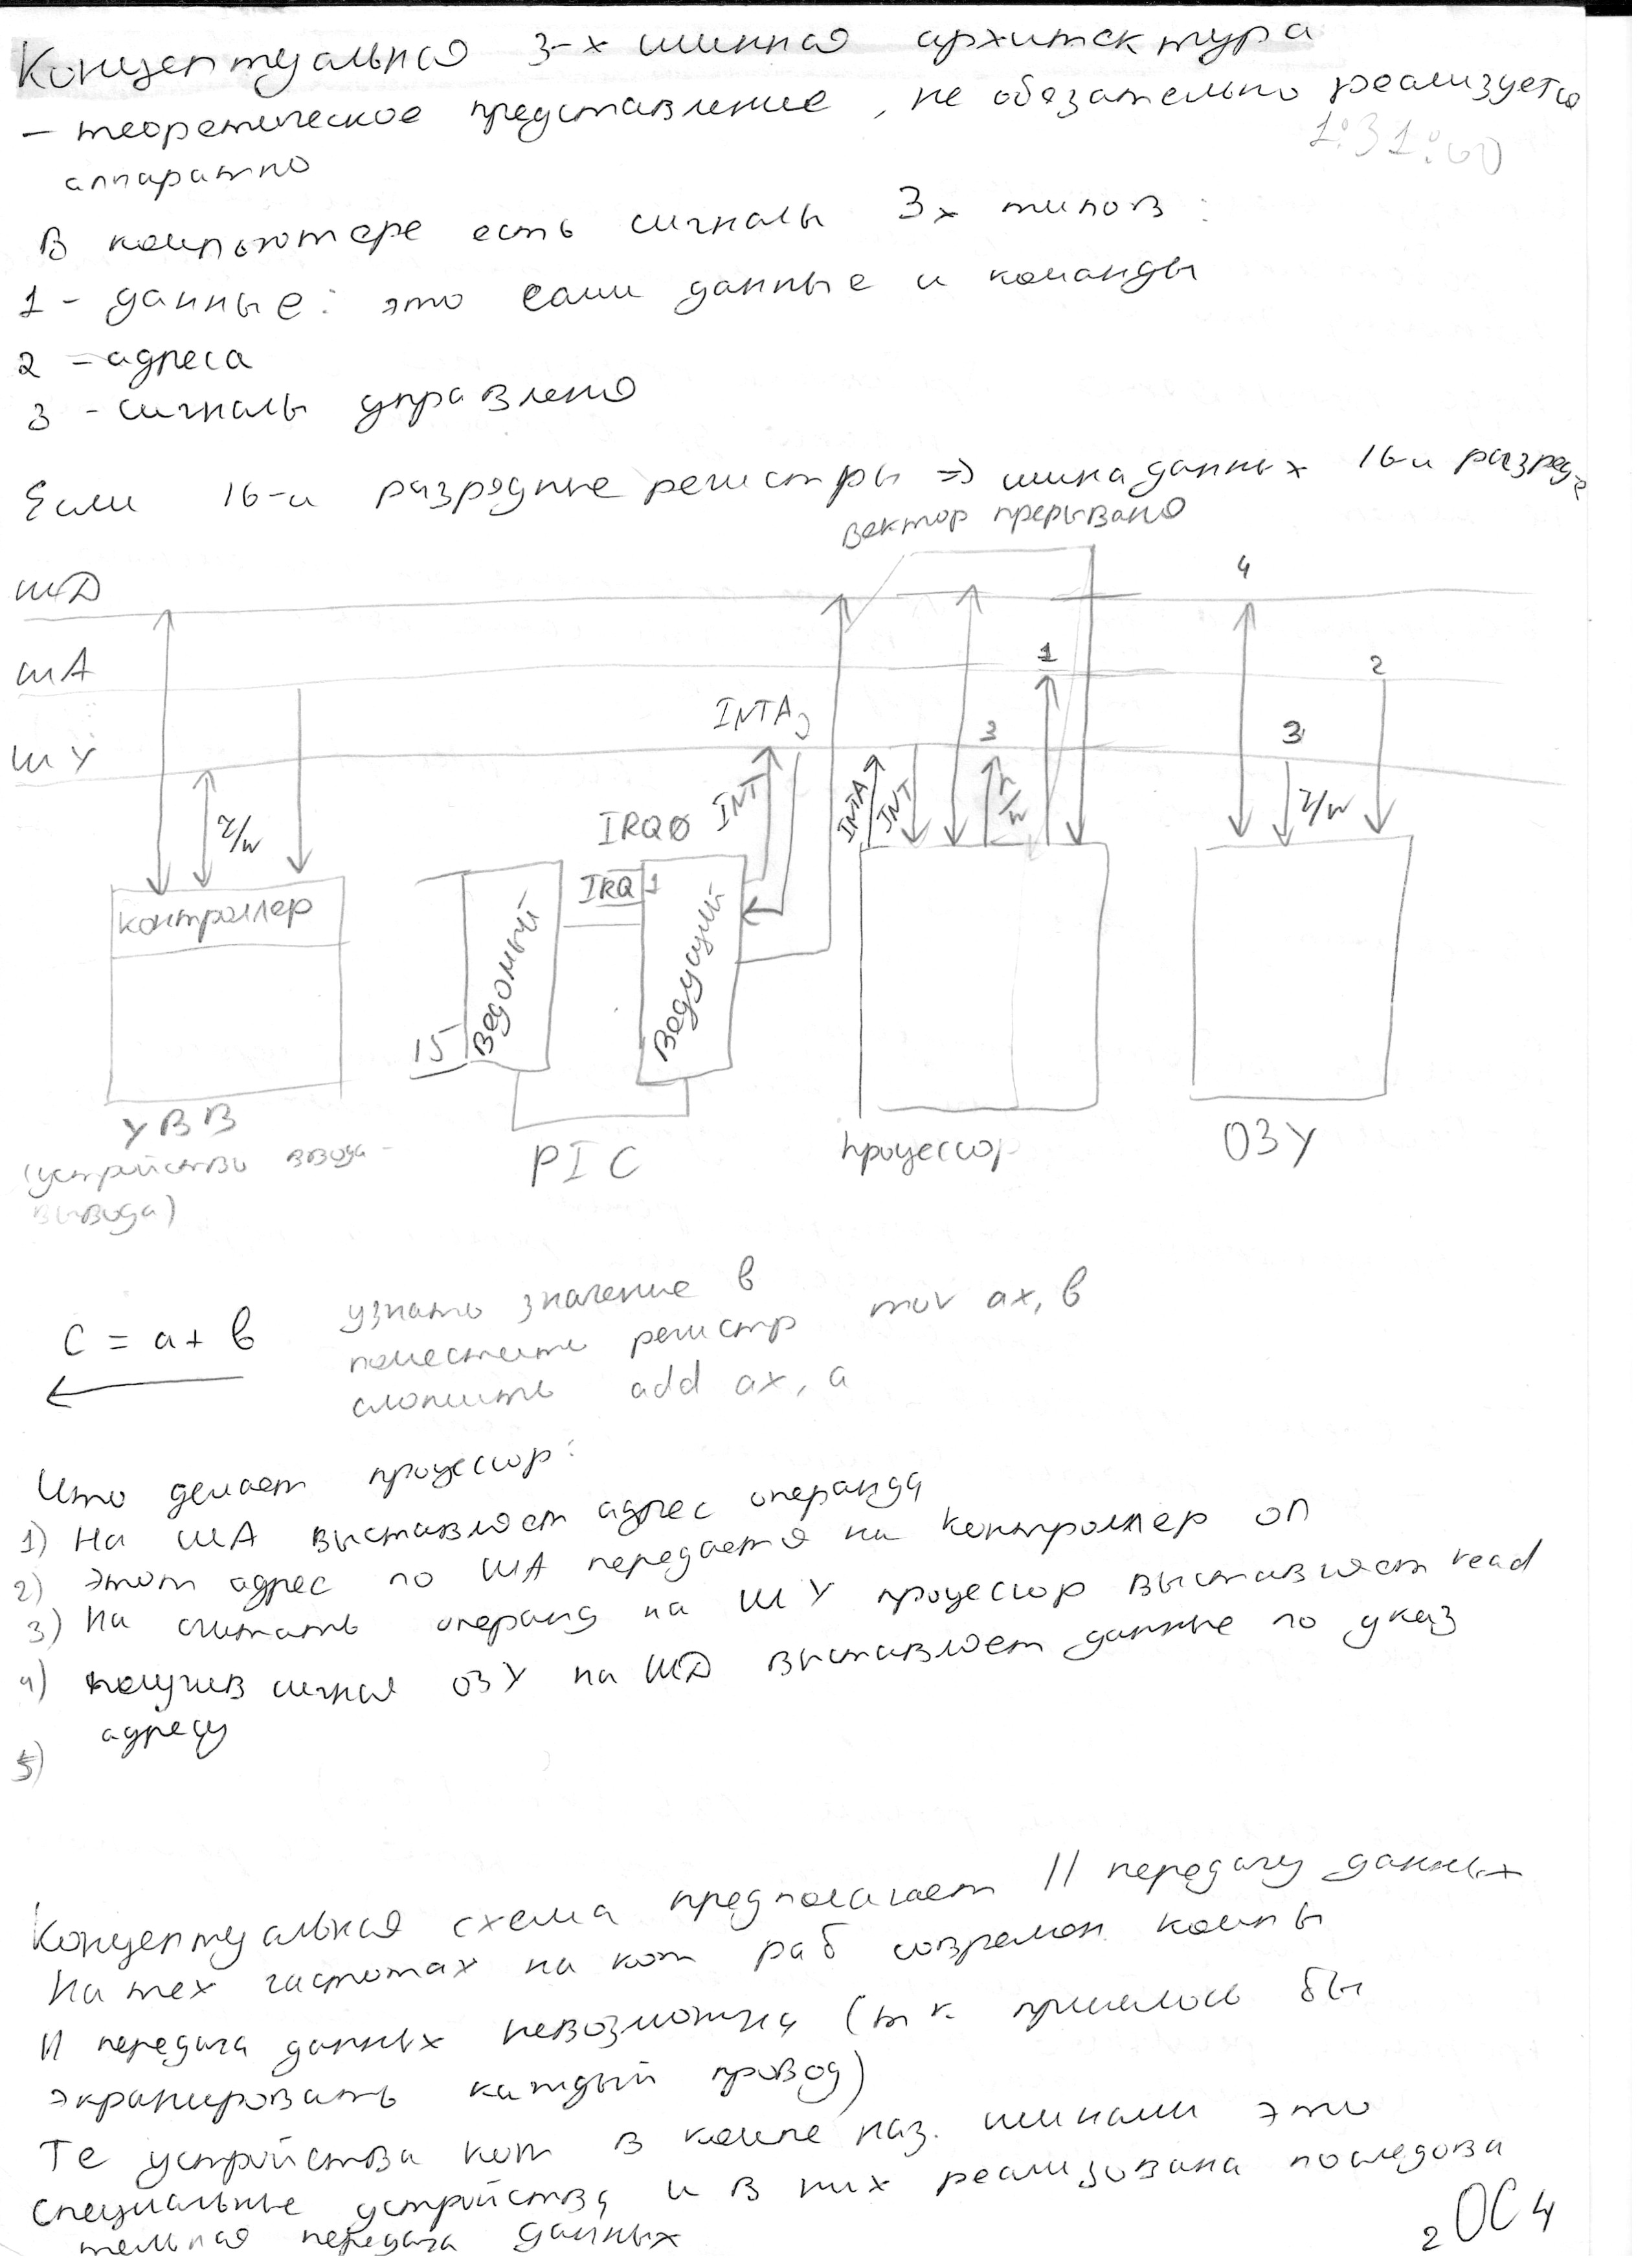 Концептуальная 3-х шинная архитектура
- теоретическое представление, не обязательно реализуется
1:31:00
аппаратно
В компьютере есть сигналы 3х типов:
1 - данные: это сами данные и команды
2 - адреса
3 - сигналы управления
Если 16-и разрядные регистры => шина данных 16-и разряд.
вектор прерывания
ШД
4
ША
1
2
INTA
ШУ
3
3
r/w
IRQ0
INT
INTA
INT
r/w
r/w
контроллер
IRQ 1
Ведомый
Ведущий
15
УВВ
(устройство ввода-
вывода)
PIC
процессор
ОЗУ
C = a + b
узнать значение b
поместить регистр mov ax, b
сложить add ax, a
Что делает процессор:
1) На ША выставляет адрес операнда
2) этот адрес по ША передается на контроллер ОП
3) На считать операнд на ШУ процессор выставляет read
4) получив сигнал ОЗУ на ШД выставляет данные по указ
адресу
5)
Концептуальная схема предполагает // передачу данных
На тех частотах на кот раб современ. компы
// передача данных невозможна (т к. пришлось бы
экранировать каждый провод)
Те устройства кот в компе наз. шинами это
специальные устройства и в них реализована последова
тельная передача данных
2 ОС 4